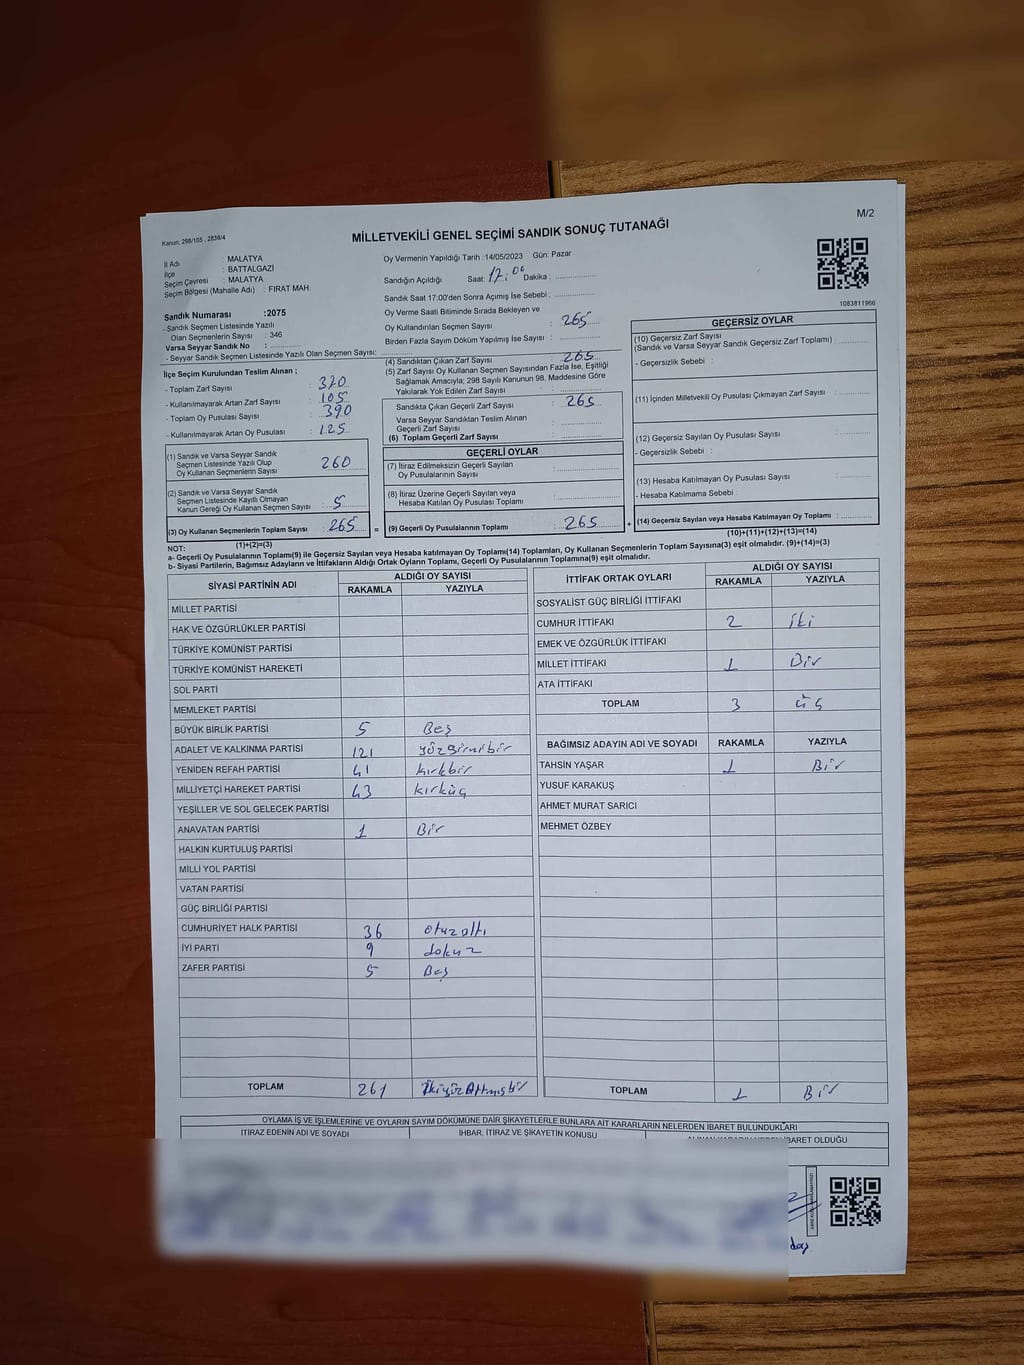 M/2
Kanun, 298/105 , 2839/4
MİLLETVEKİLİ GENEL SEÇİMİ SANDIK SONUÇ TUTANAĞI
İl Adı : MALATYA
İlçe : BATTALGAZİ
Seçim Çevresi : MALATYA
Seçim Bölgesi (Mahalle Adı) : FIRAT MAH.
Sandık Numarası :2075
- Sandık Seçmen Listesinde Yazılı
Olan Seçmenlerin Sayısı : 346
Varsa Seyyar Sandık No :
- Seyyar Sandık Seçmen Listesinde Yazılı Olan Seçmen Sayısı:
Oy Vermenin Yapıldığı Tarih :14/05/2023 Gün: Pazar
Sandığın Açıldığı Saat: 17:00 Dakika :
Sandık Saat 17.00'den Sonra Açımış İse Sebebi :
Oy Verme Saati Bitiminde Sırada Bekleyen ve
Oy Kullandırılan Seçmen Sayısı : 265
Birden Fazla Sayım Döküm Yapılmış İse Sayısı :
1083811966
İlçe Seçim Kurulundan Teslim Alınan ;
- Toplam Zarf Sayısı : 370
- Kullanılmayarak Artan Zarf Sayısı : 105
- Toplam Oy Pusulası Sayısı : 390
- Kullanılmayarak Artan Oy Pusulası : 125
(1) Sandık ve Varsa Seyyar Sandık
Seçmen Listesinde Yazılı Olup
Oy Kullanan Seçmenlerin Sayısı 260
(2) Sandık ve Varsa Seyyar Sandık
Seçmen Listesinde Kayıtlı Olmayan
Kanun Gereği Oy Kullanan Seçmen Sayısı : 5
(3) Oy Kullanan Seçmenlerin Toplam Sayısı : 265 =
(1)+(2)=(3)
(4) Sandıktan Çıkan Zarf Sayısı : 265
(5) Zarf Sayısı Oy Kullanan Seçmen Sayısından Fazla İse, Eşitliği
Sağlamak Amacıyla; 298 Sayılı Kanunun 98. Maddesine Göre
Yakılarak Yok Edilen Zarf Sayısı :
Sandıkta Çıkan Geçerli Zarf Sayısı : 265
Varsa Seyyar Sandıktan Teslim Alınan
Geçerli Zarf Sayısı :
(6) Toplam Geçerli Zarf Sayısı :
GEÇERLİ OYLAR
(7) İtiraz Edilmeksizin Geçerli Sayılan
Oy Pusulalarının Sayısı :
(8) İtiraz Üzerine Geçerli Sayılan veya
Hesaba Katılan Oy Pusulası Toplamı :
(9) Geçerli Oy Pusulalarının Toplamı : 265 +
GEÇERSİZ OYLAR
(10) Geçersiz Zarf Sayısı
(Sandık ve Varsa Seyyar Sandık Geçersiz Zarf Toplamı) :
- Geçersizlik Sebebi :
(11) İçinden Milletvekili Oy Pusulası Çıkmayan Zarf Sayısı :
(12) Geçersiz Sayılan Oy Pusulası Sayısı :
- Geçersizlik Sebebi :
(13) Hesaba Katılmayan Oy Pusulası Sayısı :
- Hesaba Katılmama Sebebi :
(14) Geçersiz Sayılan veya Hesaba Katılmayan Oy Toplamı :
(10)+(11)+(12)+(13)=(14)
NOT:
a- Geçerli Oy Pusulalarının Toplamı(9) ile Geçersiz Sayılan veya Hesaba katılmayan Oy Toplamı(14) Toplamları, Oy Kullanan Seçmenlerin Toplam Sayısına(3) eşit olmalıdır. (9)+(14)=(3)
b- Siyasi Partilerin, Bağımsız Adayların ve İttifakların Aldığı Ortak Oyların Toplamı, Geçerli Oy Pusulalarının Toplamına(9) eşit olmalıdır.
SİYASİ PARTİNİN ADI ALDIĞI OY SAYISI
RAKAMLA YAZIYLA
MİLLET PARTİSİ
HAK VE ÖZGÜRLÜKLER PARTİSİ
TÜRKİYE KOMÜNİST PARTİSİ
TÜRKİYE KOMÜNİST HAREKETİ
SOL PARTİ
MEMLEKET PARTİSİ
BÜYÜK BİRLİK PARTİSİ 5 Beş
ADALET VE KALKINMA PARTİSİ 121 yüzyirmibir
YENİDEN REFAH PARTİSİ 41 kırkbir
MİLLİYETÇİ HAREKET PARTİSİ 43 kırküç
YEŞİLLER VE SOL GELECEK PARTİSİ
ANAVATAN PARTİSİ 1 Bir
HALKIN KURTULUŞ PARTİSİ
MİLLİ YOL PARTİSİ
VATAN PARTİSİ
GÜÇ BİRLİĞİ PARTİSİ
CUMHURİYET HALK PARTİSİ 36 otuzaltı
İYİ PARTİ 9 dokuz
ZAFER PARTİSİ 5 Beş
TOPLAM 261 İkiyüzAltmışbir
İTTİFAK ORTAK OYLARI ALDIĞI OY SAYISI
RAKAMLA YAZIYLA
SOSYALİST GÜÇ BİRLİĞİ İTTİFAKI
CUMHUR İTTİFAKI 2 iki
EMEK VE ÖZGÜRLÜK İTTİFAKI
MİLLET İTTİFAKI 1 Bir
ATA İTTİFAKI
TOPLAM 3 üç
BAĞIMSIZ ADAYIN ADI VE SOYADI RAKAMLA YAZIYLA
TAHSİN YAŞAR 1 Bir
YUSUF KARAKUŞ
AHMET MURAT SARICI
MEHMET ÖZBEY
TOPLAM 1 Bir
OYLAMA İŞ VE İŞLEMLERİNE VE OYLARIN SAYIM DÖKÜMÜNE DAİR ŞİKAYETLERLE BUNLARA AİT KARARLARIN NELERDEN İBARET BULUNDUKLARI
İTİRAZ EDENİN ADI VE SOYADI İHBAR, İTİRAZ VE ŞİKAYETİN KONUSU İBARET OLDUĞU